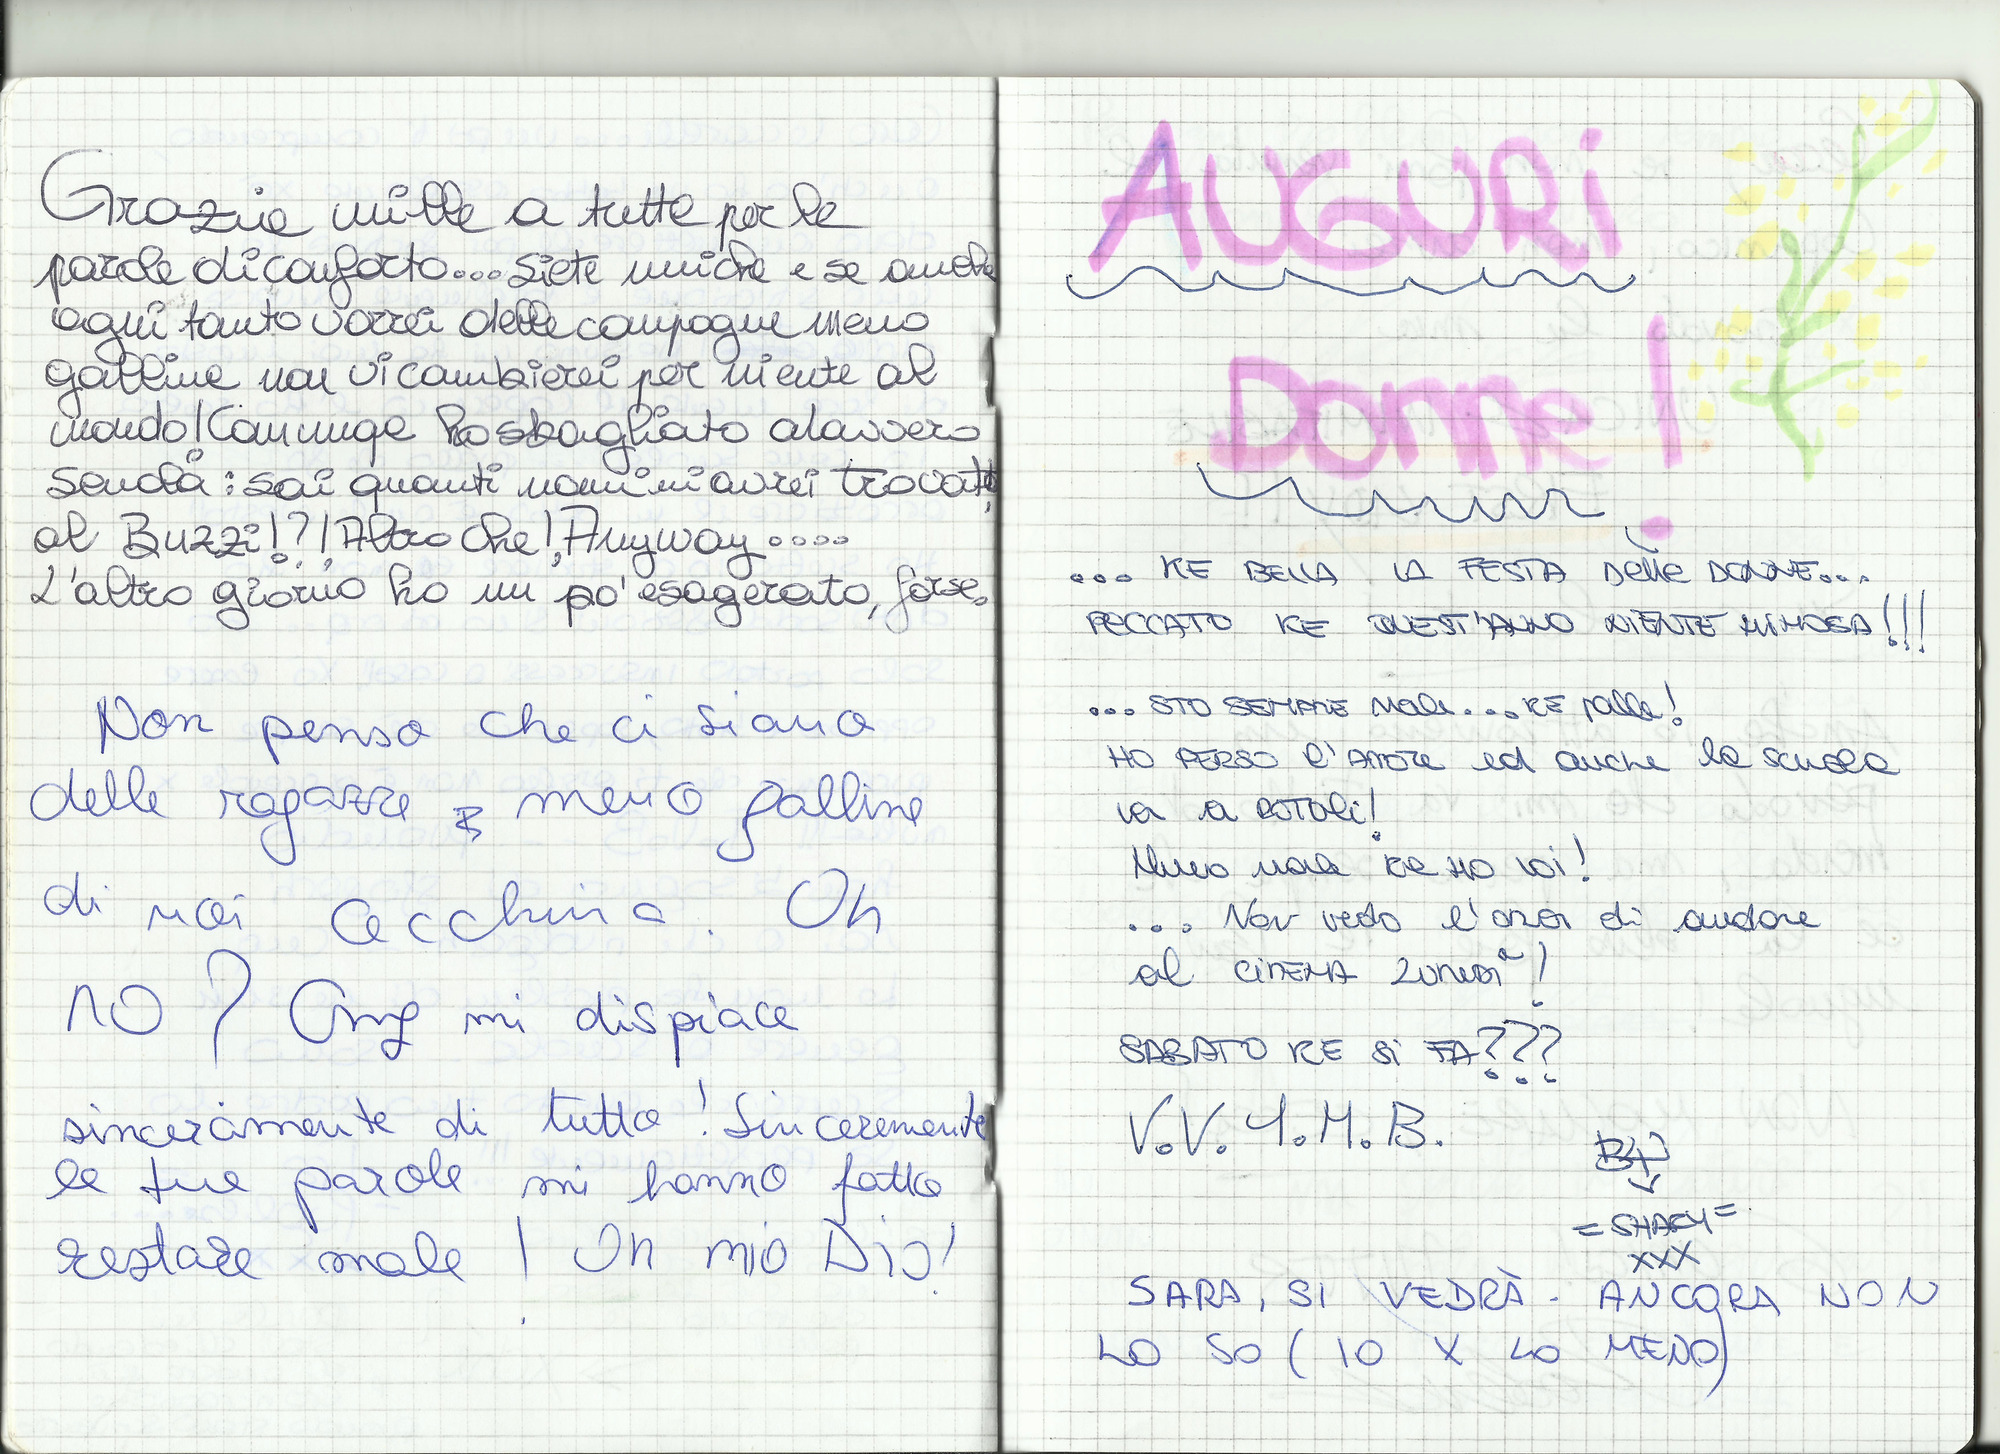 Grazie mille a tutte per le
parole di conforto... siete uniche e se anche
ogni tanto vorrei delle compagne meno
galline non vi cambierei per niente al
mondo! Comunque ho sbagliato davvero
scuola: sai quanti uomini avrei trovato
al Buzzi!?! Altro che! Anyway....
L'altro giorno ho un po' esagerato, forse.
Non penso che ci siano
delle ragazze meno galline
di noi cecchina. Oh
NO? Cmq mi dispiace
sinceramente di tutto! Sinceremente
le tue parole mi hanno fatto
restare male! Oh mio Dio!
AUGURI
DONNE!
... KE BELLA LA FESTA DELLE DONNE...
PECCATO KE QUEST'ANNO NIENTE MIMOSA!!!
... STO SEMPRE MALE... KE PALLE!
HO PERSO L'AMORE ed anche la scuola
va a ROTOLI!
Meno male KE HO VOI!
... Non vedo l'ora di andare
al CINEMA LUNEDÌ!
SABATO KE SI FA???
V.V.Y.M.B.
By
=SHARY=
XXX
SARA, SI VEDRÀ - ANCORA NON
LO SO (IO X LO MENO)